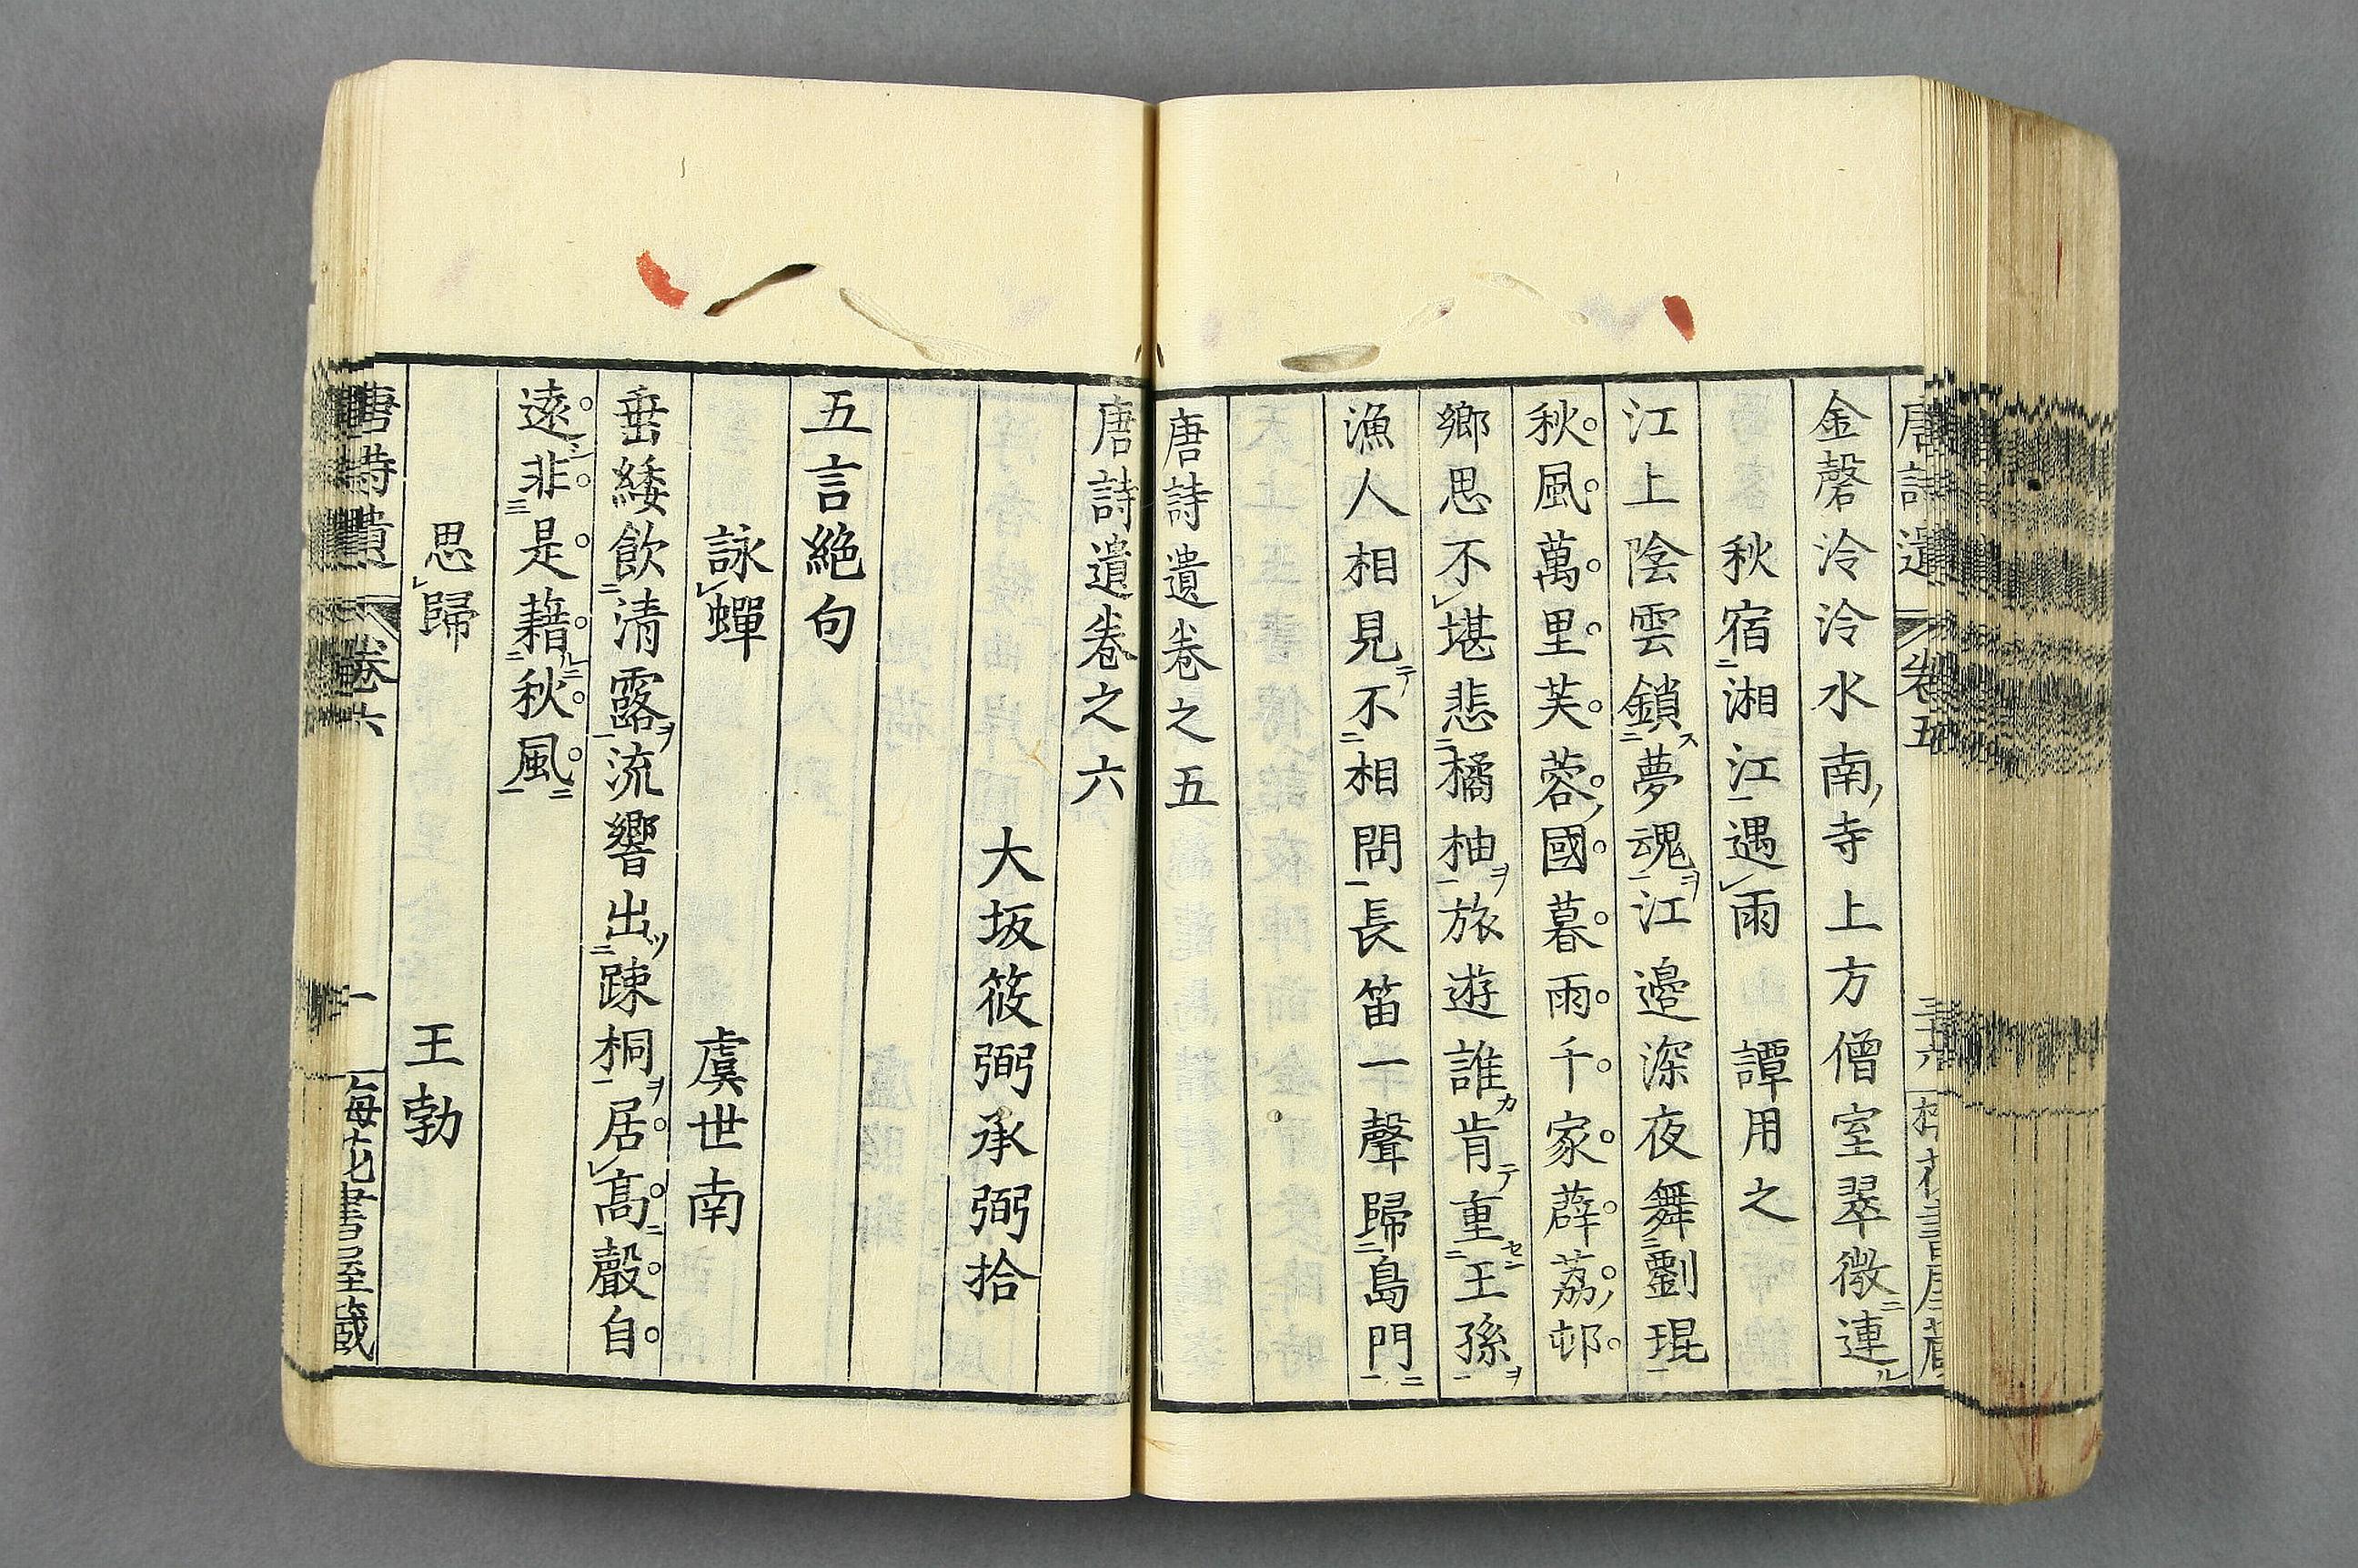 唐詩遺 卷五 三十六
金磬泠泠水南寺上方僧室翠微連
秋宿湘江遇雨 譚用之
江上陰雲鎖夢魂江邊深夜舞劉琨
秋風萬里芙蓉國暮雨千家薜荔邨
鄉思不堪悲橘柚旅遊誰肯重王孫
漁人相見不相問長笛一聲歸島門
唐詩遺卷之五
唐詩遺卷之六
大坂筱弼承弼拾
五言絕句
詠蟬 虞世南
垂緌飲清露流響出踈桐居高聲自
遠非是藉秋風
思歸 王勃
唐詩遺 卷六 一 梅花書屋藏